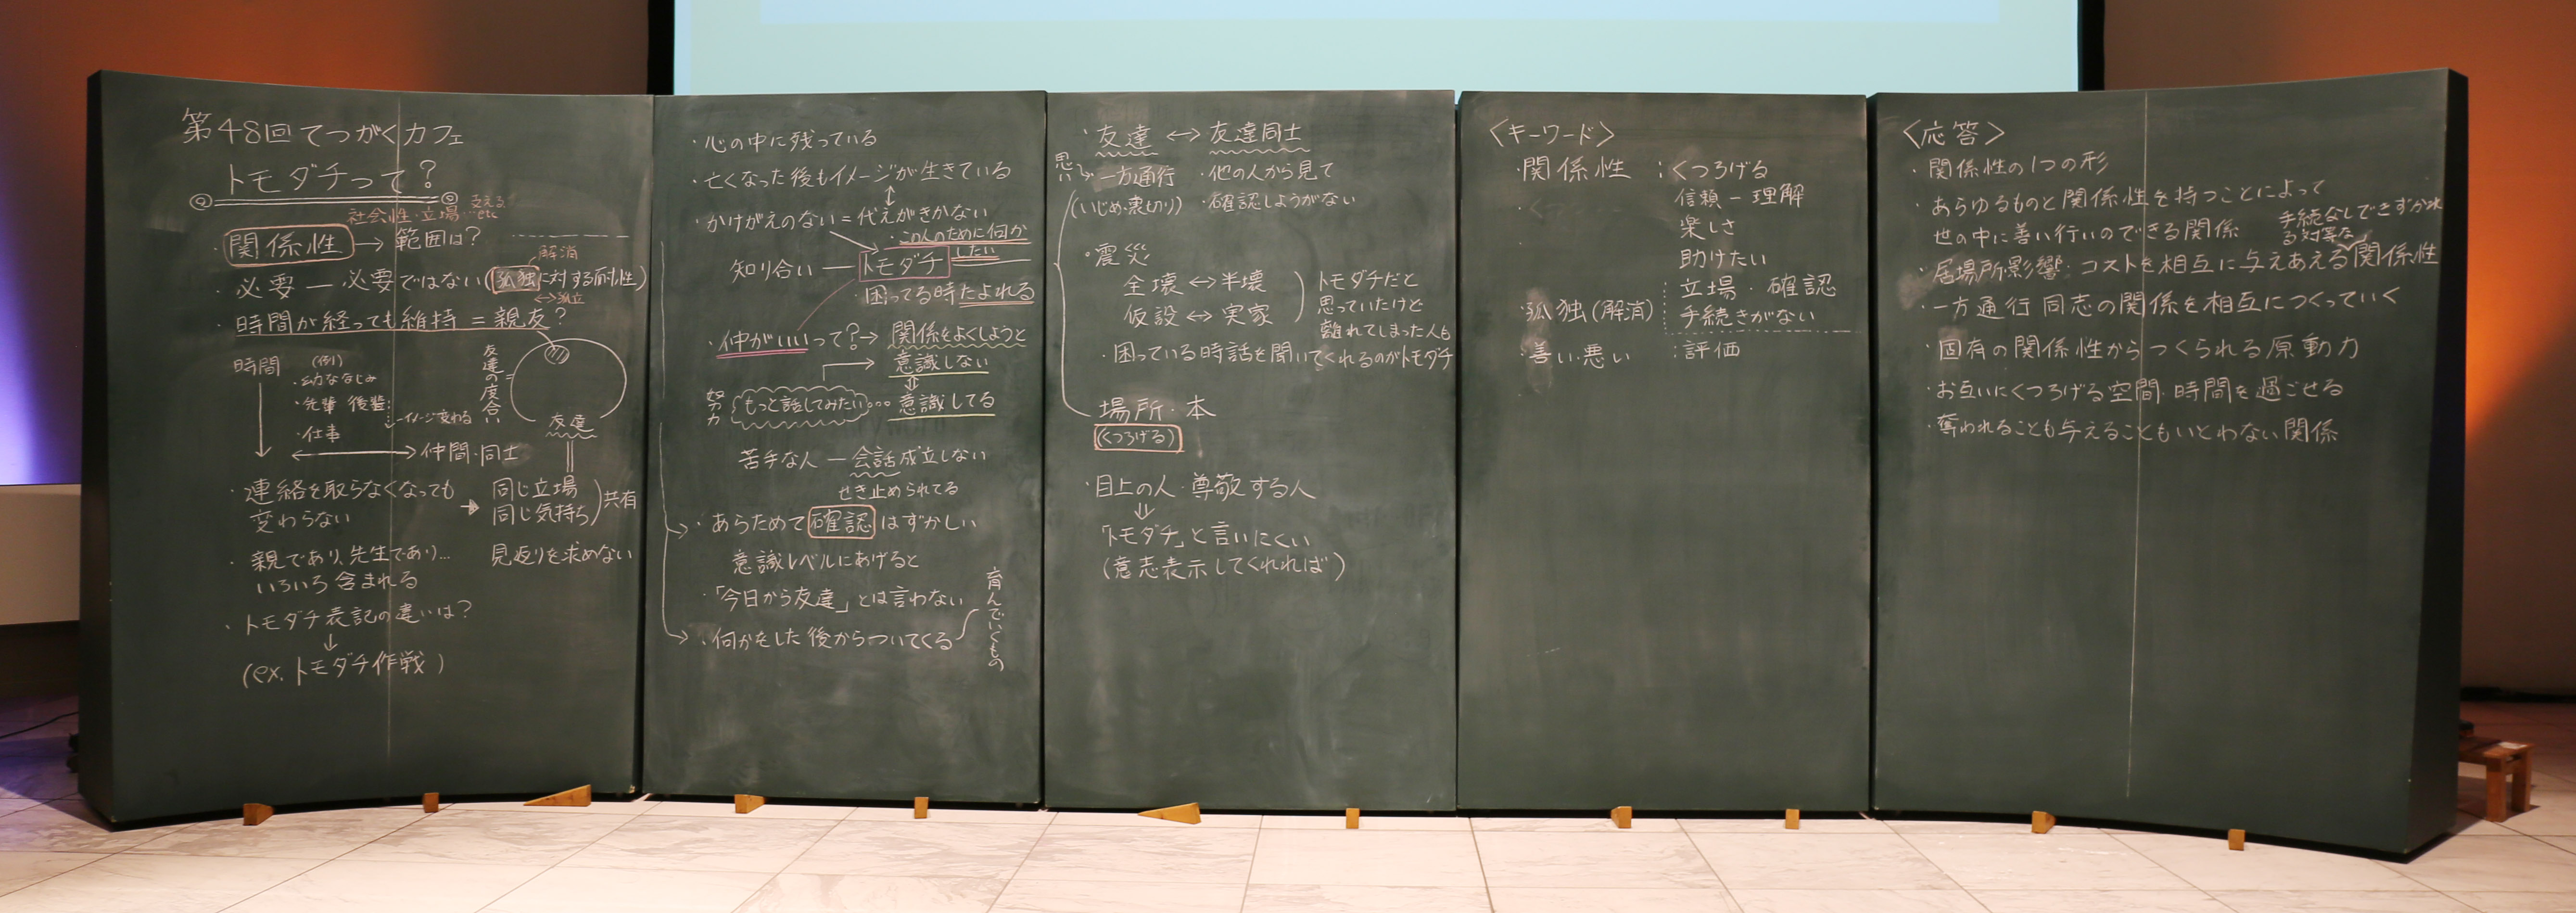 第48回てつがくカフェ
トモダチって?
社会性・立場…etc
支える
・関係性→範囲は?
解消
・必要ー必要ではない(孤独に対する耐性)
↔孤立
・時間が経っても維持=親友?
時間
(例)
・幼ななじみ
・先輩 後輩
・仕事
イメージ変わる
仲間・同士
友達の度合い=
友達
・連絡を取らなくなっても
変わらない
同じ立場
同じ気持ち)共有
見返りを求めない
・親であり、先生であり…
いろいろ含まれる
・トモダチ表記の違いは?
↓
(ex.トモダチ作戦)
・心の中に残っている
・亡くなった後もイメージが生きている
・かけがえのない=代えがきかない
・この人のために何か
したい
知り合いートモダチ
・困ってる時たよれる
・仲がいいって?→関係をよくしようと
→意識しない
⇕
努力 もっと話してみたい…意識してる
苦手な人ー会話成立しない
せき止められてる
・あらためて確認はずかしい
意識レベルにあげると
・「今日から友達」とは言わない
・何かをした後からついてくる
育んでいくもの
・友達↔友達同士
思い→一方通行
・他の人から見て
(いじめ・裏切り)
・確認しようがない
・震災
全壊↔半壊
仮設↔実家
トモダチだと
思っていたけど
離れてしまった人も
・困っている時話を聞いてくれるのがトモダチ
場所・本
(くつろげる)
・目上の人・尊敬する人
⇓
「トモダチ」と言いにくい
(意志表示してくれれば)
〈キーワード〉
・関係性:くつろげる
信頼ー理解
楽しさ
助けたい
立場・確認
手続きがない
・孤独(解消)
・善い・悪い:評価
〈応答〉
・関係性の1つの形
・あらゆるものと関係性を持つことによって
世の中に善い行いのできる関係
手続なしできずかれ
る対等な
・居場所・影響・コストを相互に与えあえる関係性
・一方通行同志の関係を相互につくっていく
・固有の関係性からつくられる原動力
・お互いにくつろげる空間・時間を過ごせる
・奪われることも与えることもいとわない関係